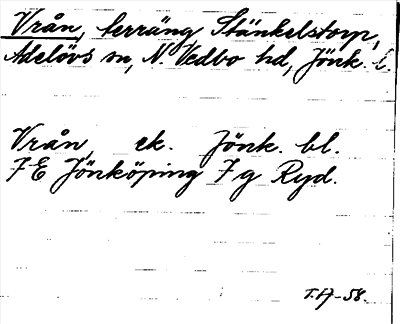 Vrån, terräng Stänkelstorp,
Adelövs sn, N. Vedbo hd, Jönk. l.
Vrån, ek. Jönk. bl.
7E Jönköping 7g Ryd.
T.A-58.